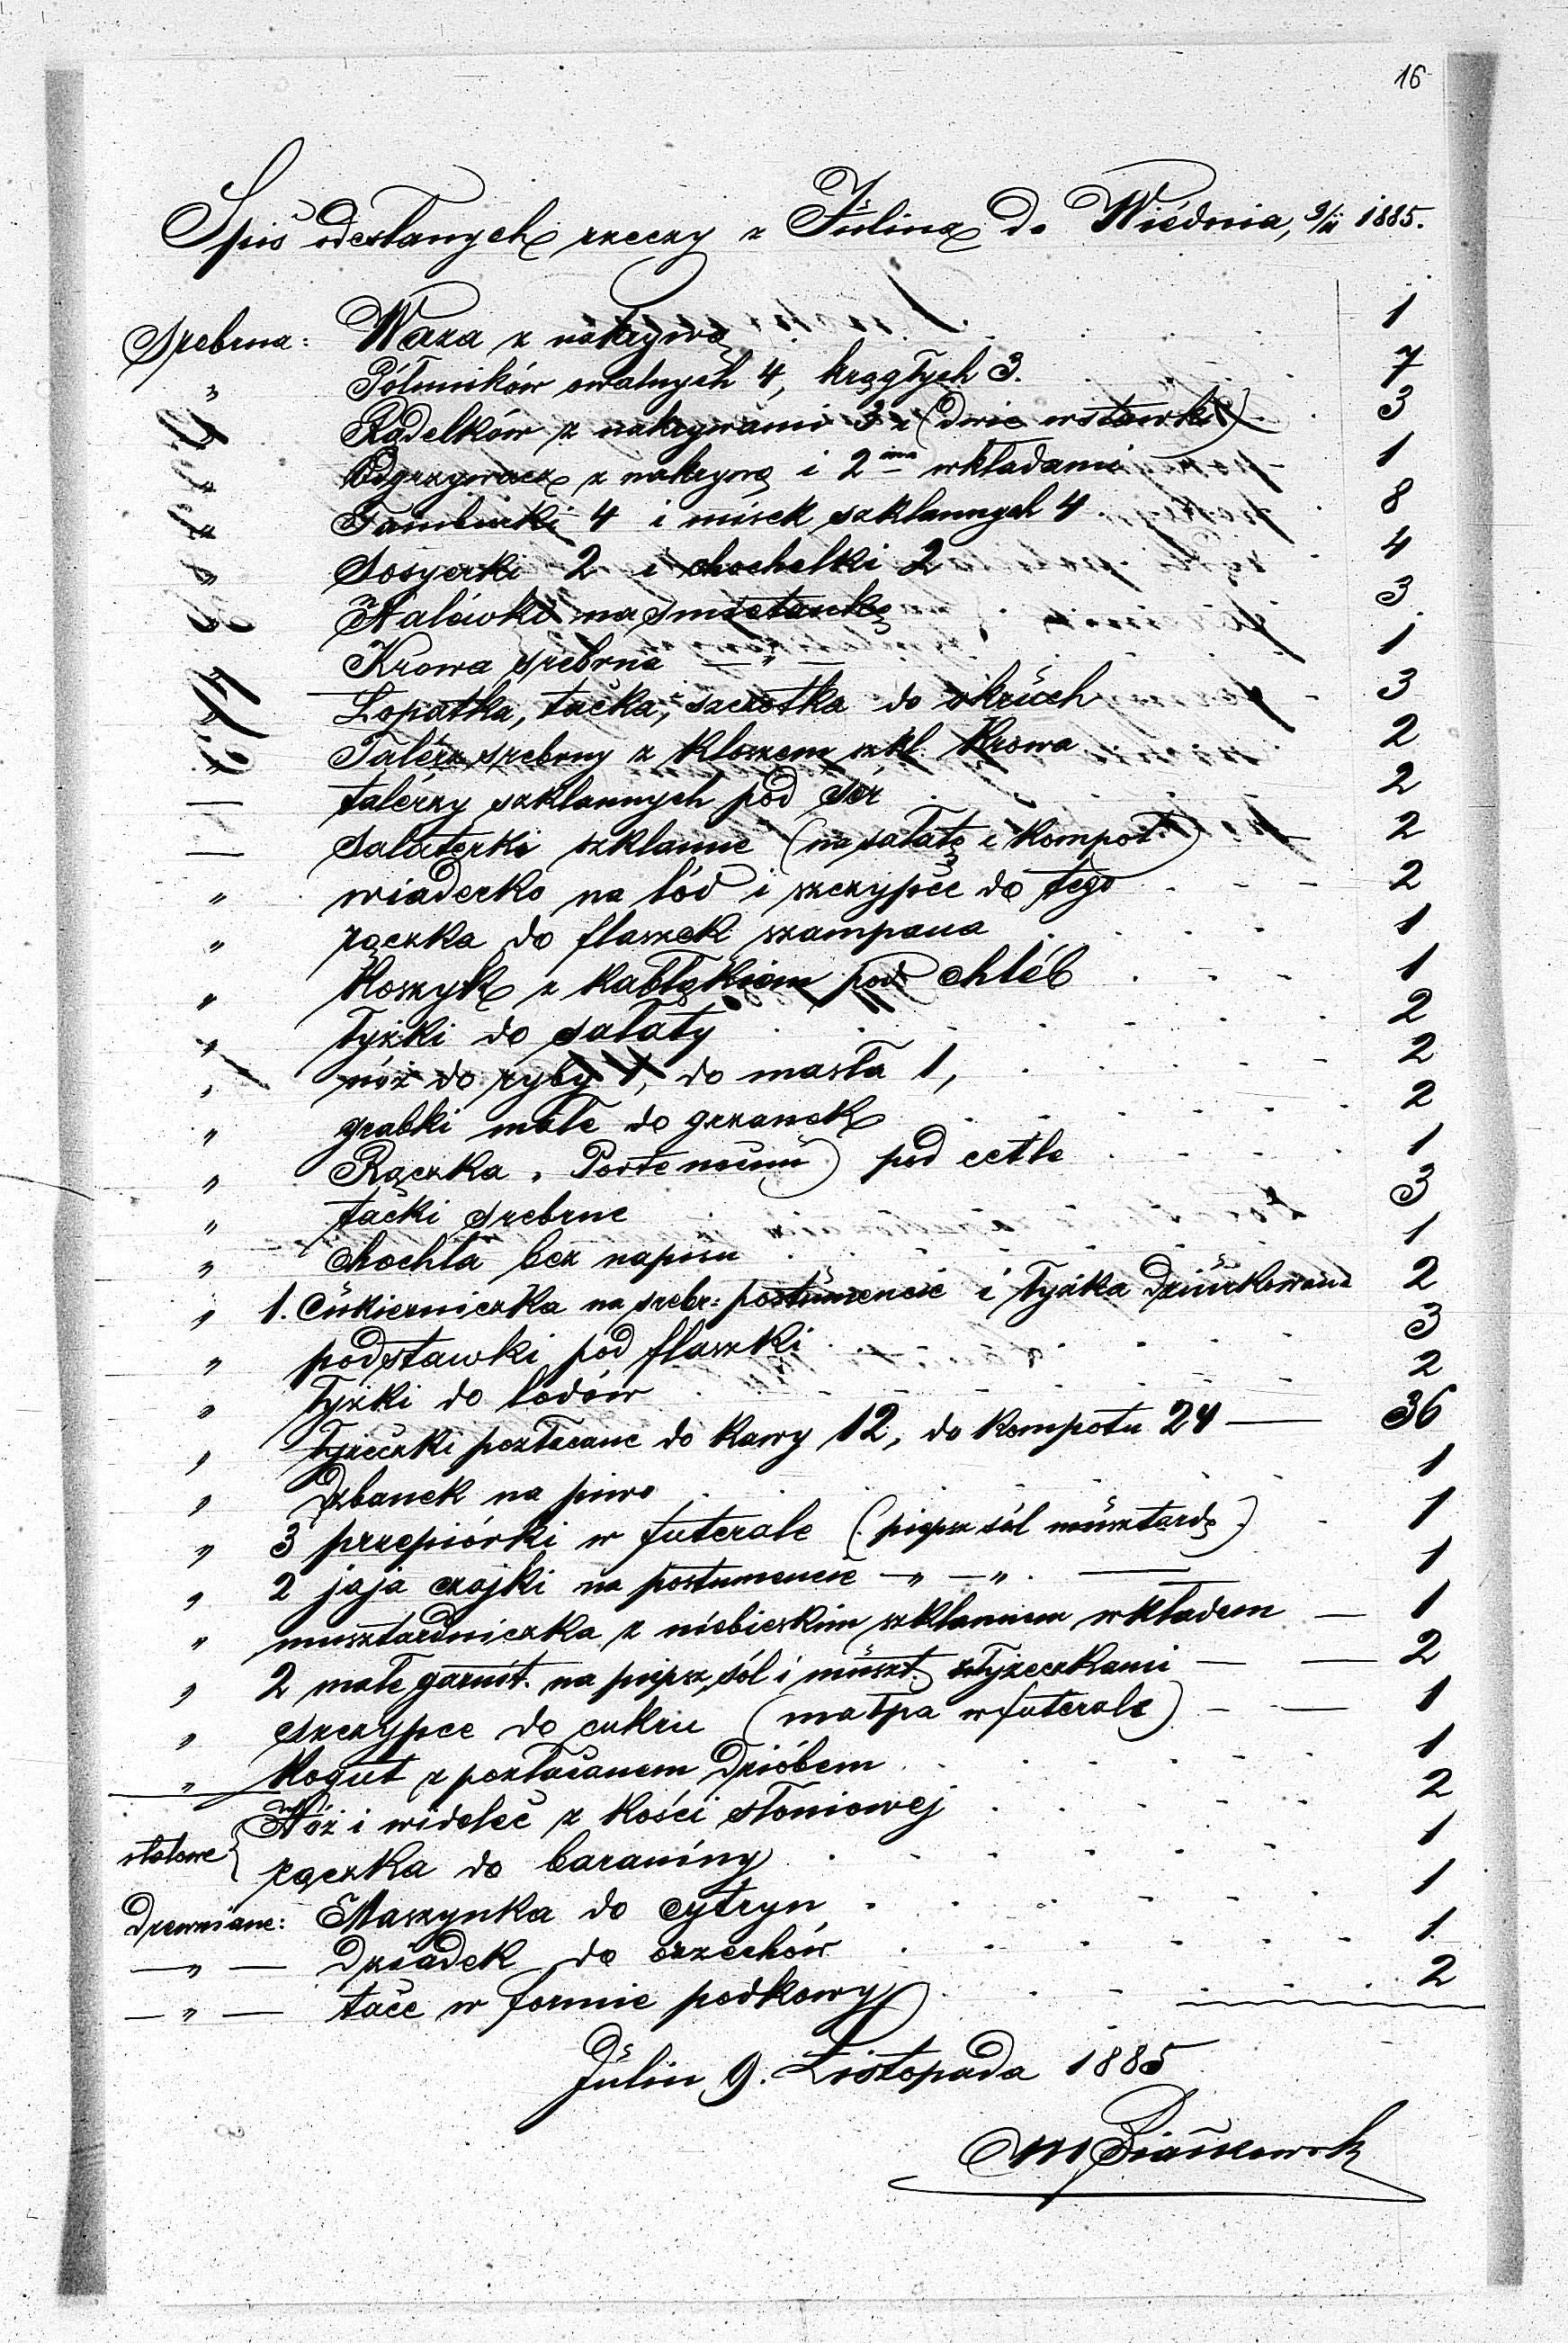 16
Spis odesłanych rzeczy z Julina do Wiédnia, 9/11 1885.
Srebrna: Waza z nakrywą 1
" Półmisków owalnych 4, krągłych 3. 7
" Rądelków z nakrywami 3 i (dwie wstawki) 3
" Odgrzywacz z nakrywą i 2ma wkładami 1
" Tamburki 4 i misek szklannych 4 8
" Sosyerki 2 i chochelki 2 4
" Nalewki na śmietankę 3
" Krowa srebrna — " — 1
" Łopatka, tacka, szczotka do okruch 3
" Talérz srebrny z kloszem szkl. Krowa 2
— talérzy szklannych pod sér 2
— Salaterki szklanne (na sałatę i kompot) 2
" wiaderko na lód i szczypce do tego 2
" rączka do flaszek szampana 1
" Koszyk z kabłąkiem pod chléb 1
" łyżki do sałaty 2
" nóż do ryby 1, do masła 1, 2
" grabki małe do grzanek 2
" Rączka pod cetle 1
" tacki srebrne 3
" Chochla bez napisu 1
" 1. Cukierniczka na srebr: postumencie i łyżka dziurkowana 2
" podstawki pod flaszki 3
" łyżki do lodów 2
" łyżeczki pozłacane do kawy 12, do kompotu 24 — 36
" Dzbanek na piwo 1
" 3 przepiórki w futerale (pieprz sól musztardę) 1
" 2 jaja czajki na postumencie — " — " . — 1
" musztardniczka z niebieskim szklannem wkładem — 1
" 2 małe garnit. na pieprz, sól i muszt. z łyżeczkami — — 2
" szczypce do cukru (małpa w futerale) — — 1
" Kogut z pozłacanem dzióbem 1
stalowe { Nóż i widelec z kości słoniowej 2
rączka do baraniny 1
Drewniane: Maszynka do cytryn 1
— " — Dziadek do orzechów 1
— " — tace w formie podkowy 2
Julin 9. Listopada 1885